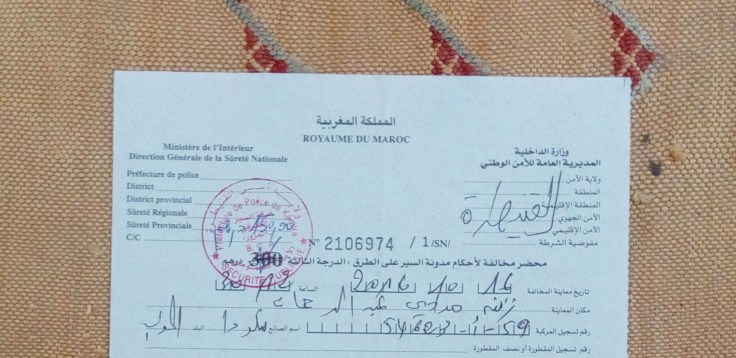 المملكة المغربية
ROYAUME DU MAROC
Ministère de l'Intérieur
Direction Générale de la Sûreté Nationale
وزارة الداخلية
المديرية العامة للأمن الوطني
Préfecture de police
District
District provincial
Sûreté Régionale
Sûreté Provinciale
C/C
ولاية الأمن
المنطقة
المنطقة الإقليمية
الأمن الجهوي
الأمن الإقليمي
مفوضية الشرطة
القنيطرة
Préfecture de Police de Kénitra
SÉCURITÉ PUBLIQUE
N° 2106974 / 1/SN/
محضر مخالفة لأحكام مدونة السير على الطرق : الدرجة الثالثة 300 درهم
تاريخ معاينة المخالفة 16 10 2016 الساعة
مكان المعاينة زنقة
رقم تسجيل المركبة اسم الصانع سكودا البلد
رقم تسجيل المقطورة أو نصف المقطورة